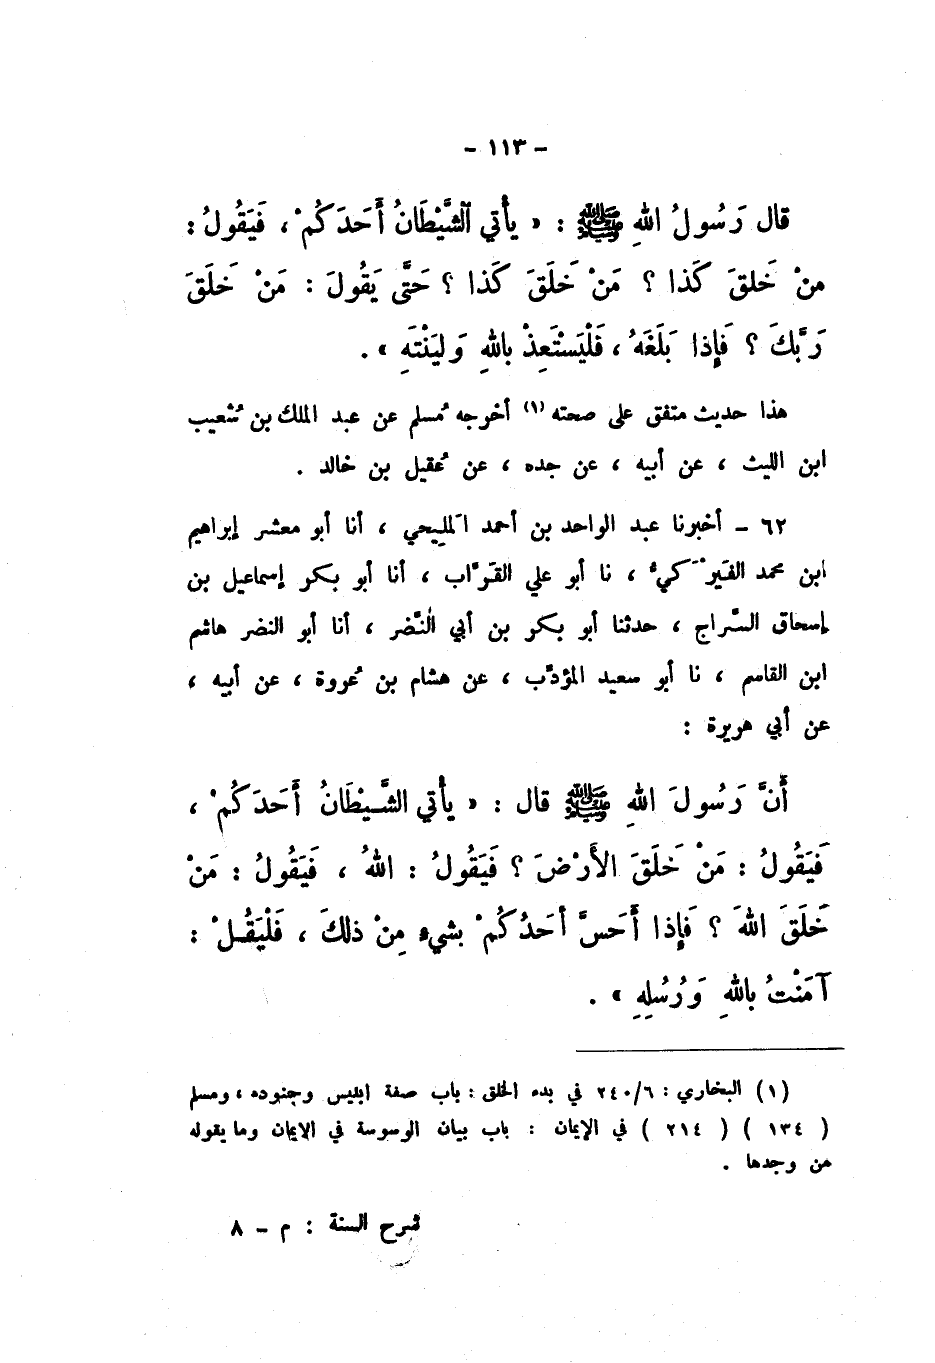 - ١١٣ -
قال رَسُولُ اللهِ ﷺ : « يأتي ٱلشَّيْطَانُ أَحَدَكُمْ ، فَيَقُولُ :
منْ خَلقَ كَذا ؟ مَنْ خَلَقَ كَذا ؟ حَتَّى يَقُولَ : مَنْ خَلَقَ
رَبَّكَ ؟ فَإِذا بَلَغَهُ ، فَلْيَسْتَعِذْ باللهِ وَليَنْتَهِ » .
هذا حديث متفق على صحته (١) أخرجه مُسلم عن عبد الملك بن شُعيب
ابن الليث ، عن أبيه ، عن جده ، عن عُقيل بن خالد .
٦٢ - أخبرنا عبد الواحد بن أحمد المَليحي ، أنا أبو معشر إبراهيم
ابن محمد الفَيْرَكيُّ ، نا أبو علي القَرَّاب ، أنا أبو بكر إسماعيل بن
إسحاق السَّراج ، حدثنا أبو بكر بن أبي النَّضر ، أنا أبو النضر هاشم
ابن القاسم ، نا أبو سعيد المؤدَّب ، عن هشام بن عُروة ، عن أبيه ،
عن أبي هريرة :
أَنَّ رَسُولَ اللهِ ﷺ قال : « يأتي الشَّيْطَانُ أَحَدَكُمْ ،
فَيَقُولُ : مَنْ خَلَقَ الأَرْضَ ؟ فَيَقُولُ : اللهُ ، فَيَقُولُ : مَنْ
خَلَقَ اللهَ ؟ فَإِذا أَحَسَّ أَحَدُكُمْ بشيءٍ مِنْ ذلكَ ، فَلْيَقُلْ :
آمَنْتُ باللهِ وَرُسُلِهِ » .
(١) البخاري : ٢٤٠/٦ في بدء الخلق : باب صفة ابليس وجنوده ، ومسلم
( ١٣٤ ) ( ٢١٤ ) في الإيمان : باب بيان الوسوسة في الايمان وما يقوله
من وجدها .
شرح السنة : م - ٨